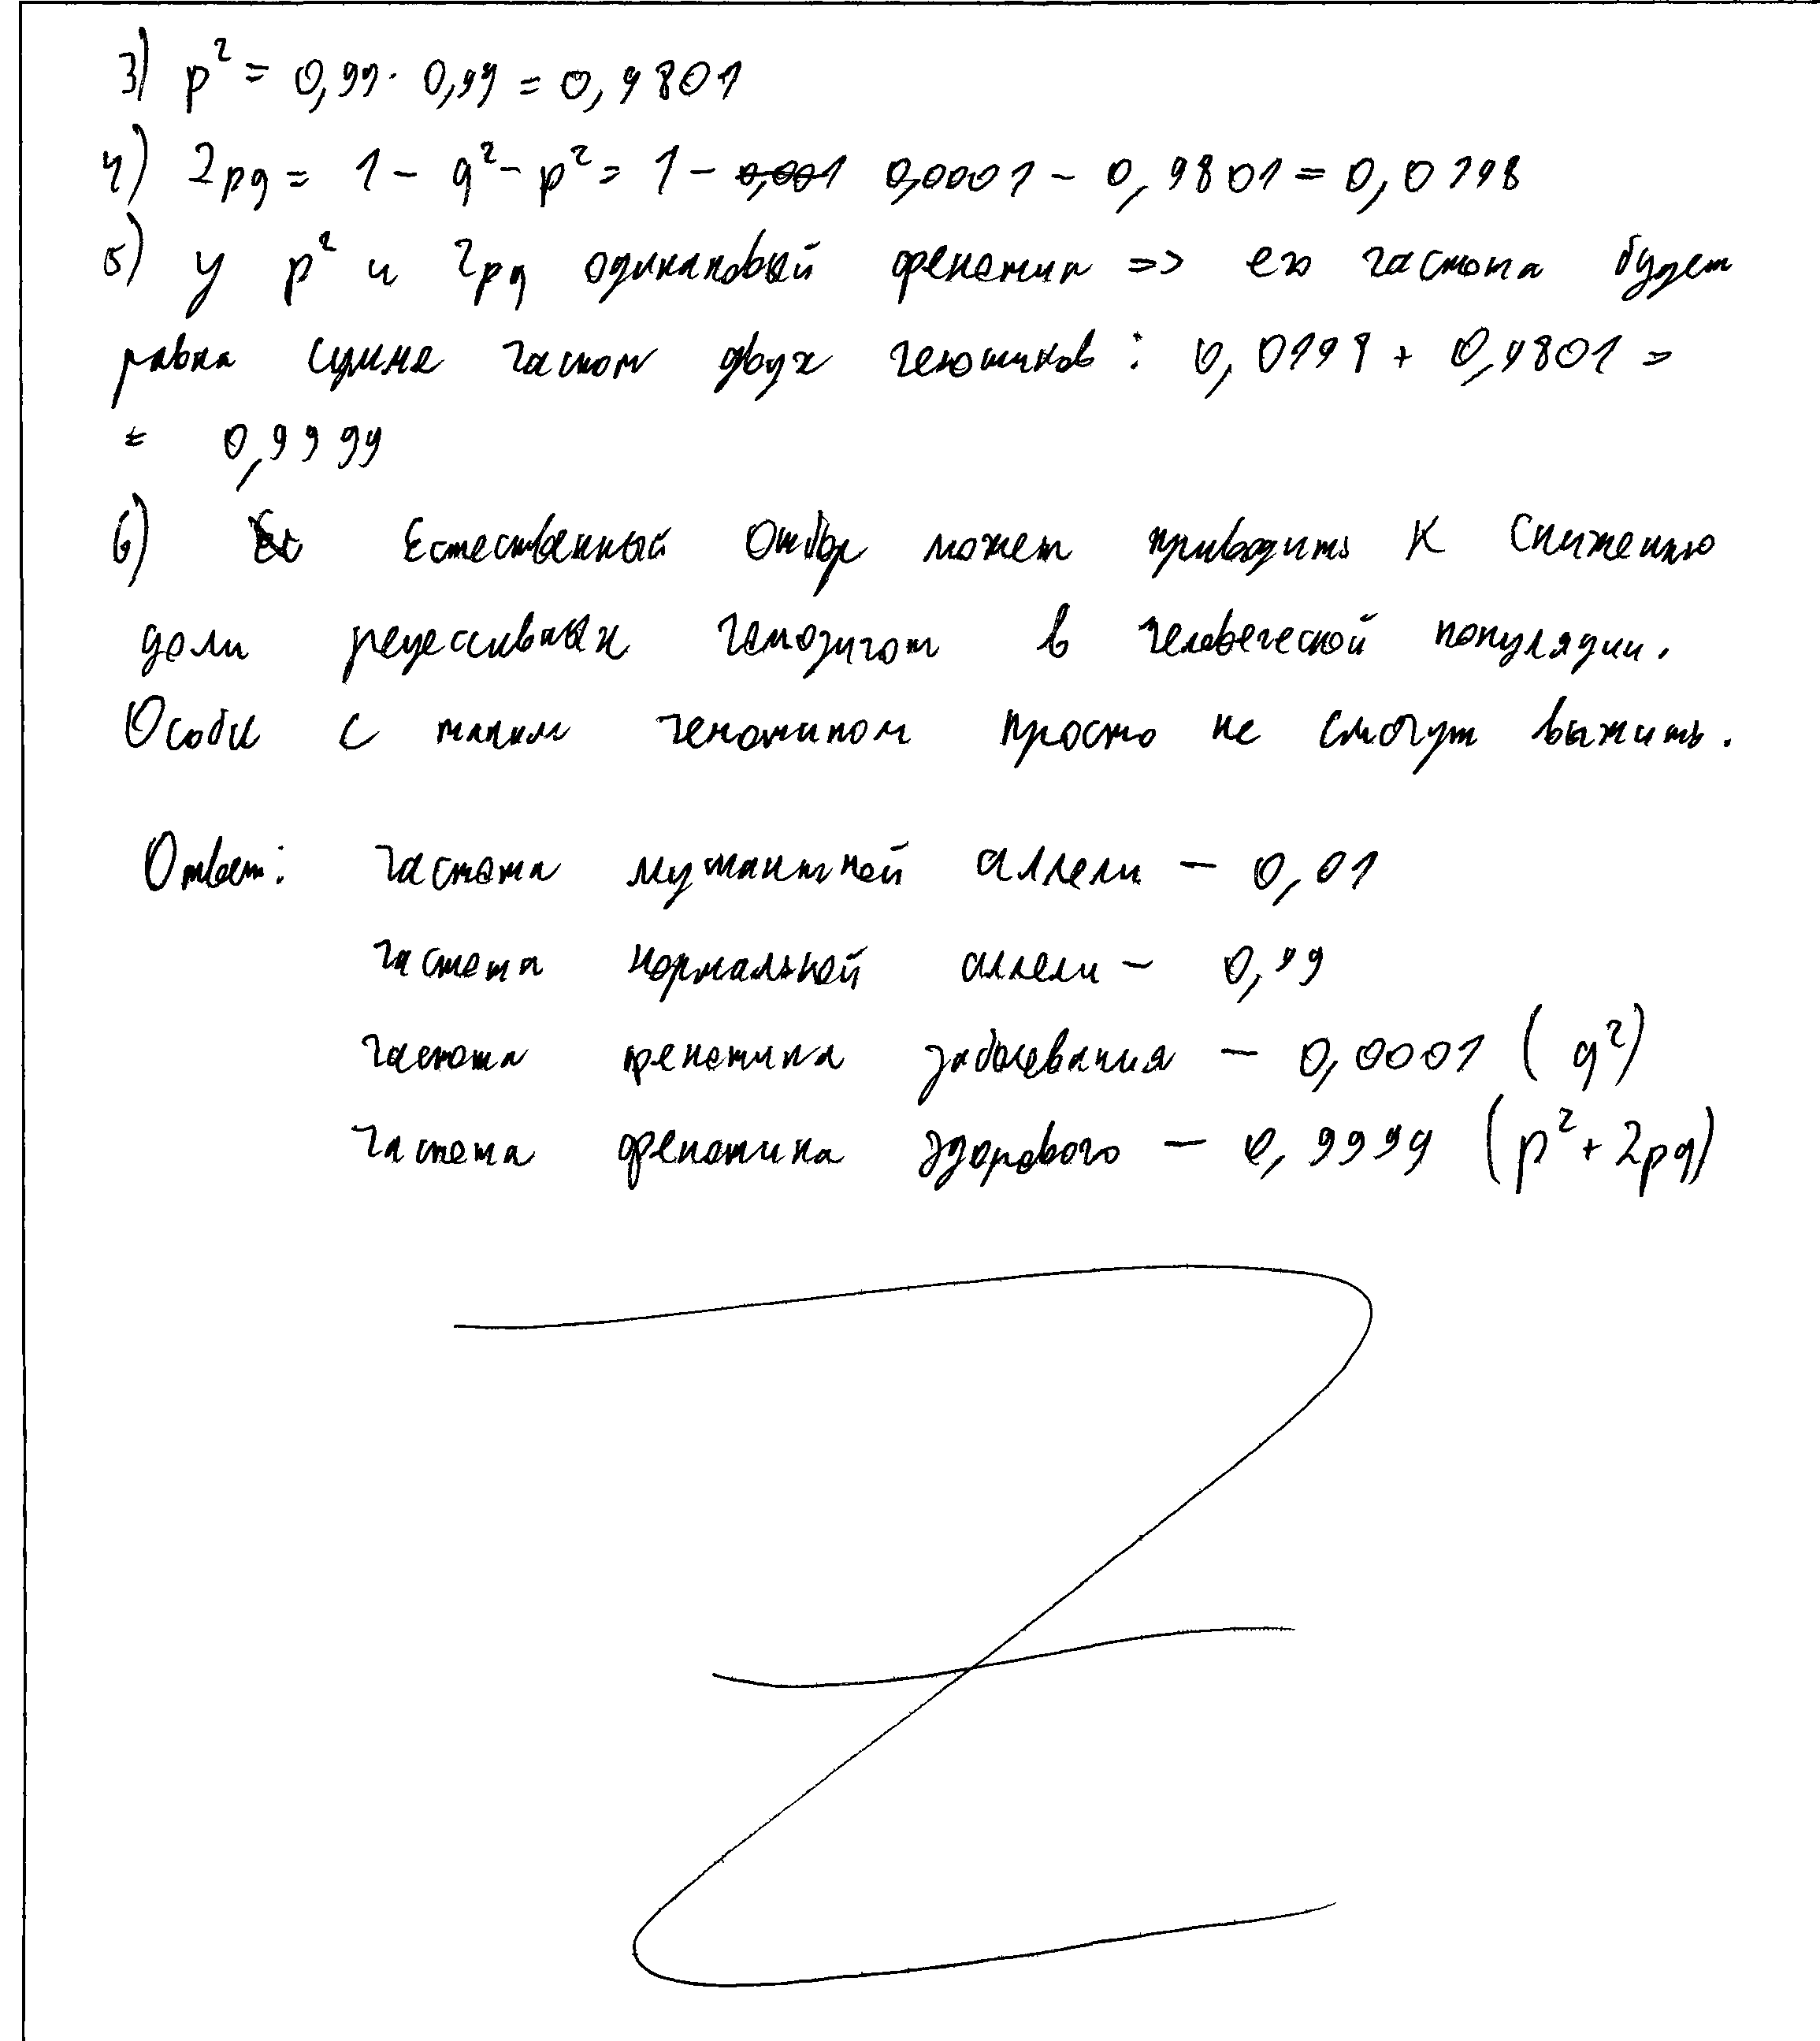 3) p² = 0,99 · 0,99 = 0,9801
4) 2pq = 1 - q² - p² = 1 - 0,001 0,0001 - 0,9801 = 0,0198
5) У p² и 2pq одинаковый фенотип => его частота будет
равна сумме частот двух генотипов: 0,0198 + 0,9801 =
= 0,9999
6) Ес Естественный отбор может приводить к снижению
доли рецессивных гомозигот в человеческой популяции.
Особи с таким генотипом просто не смогут выжить.
Ответ: частота мутантной аллели - 0,01
частота нормальной аллели - 0,99
частота фенотипа заболевания - 0,0001 (q²)
частота фенотипа здорового - 0,9999 (p² + 2pq)